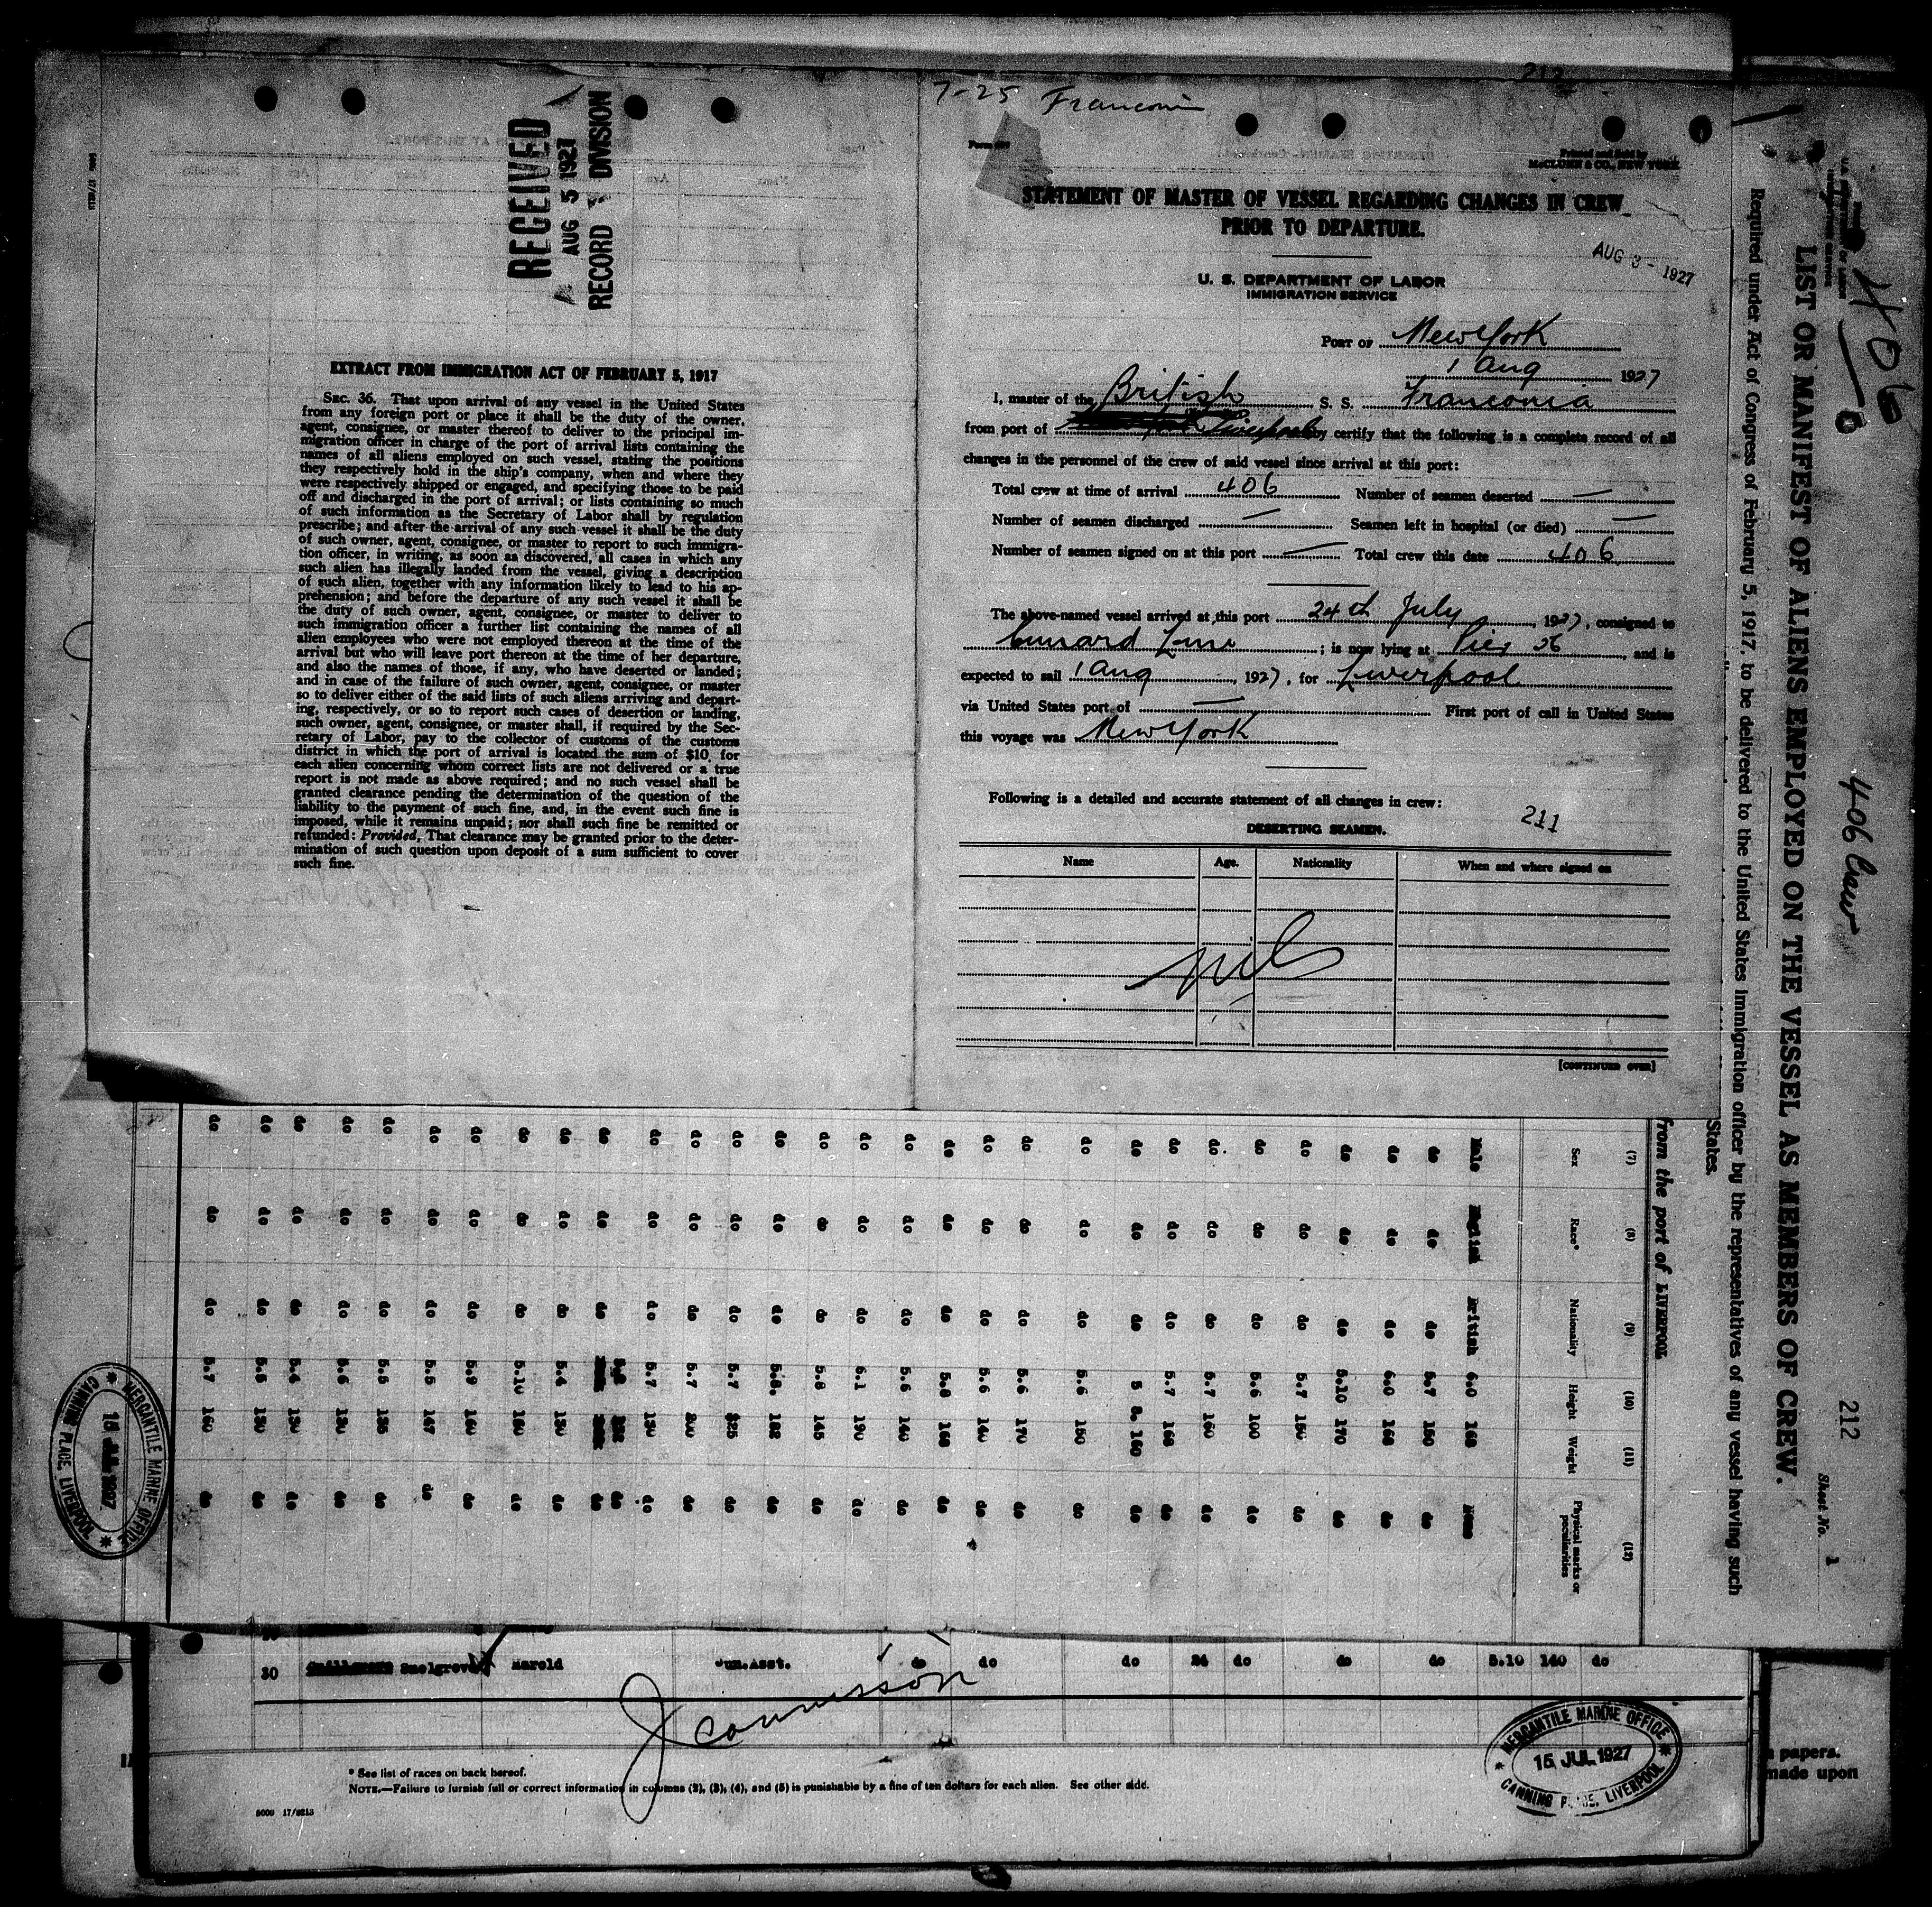 212
7-25 Franconia
RECEIVED
AUG 5 1927
RECORD DIVISION
5000 17/8213
EXTRACT FROM IMMIGRATION ACT OF FEBRUARY 5, 1917
SEC. 36. That upon arrival of any vessel in the United States
from any foreign port or place it shall be the duty of the owner,
agent, consignee, or master thereof to deliver to the principal im-
migration officer in charge of the port of arrival lists containing the
names of all aliens employed on such vessel, stating the positions
they respectively hold in the ship's company, when and where they
were respectively shipped or engaged, and specifying those to be paid
off and discharged in the port of arrival; or lists containing so much
of such information as the Secretary of Labor shall by regulation
prescribe; and after the arrival of any such vessel it shall be the duty
of such owner, agent, consignee, or master to report to such immigra-
tion officer, in writing, as soon as discovered, all cases in which any
such alien has illegally landed from the vessel, giving a description
of such alien, together with any information likely to lead to his ap-
prehension; and before the departure of any such vessel it shall be
the duty of such owner, agent, consignee, or master to deliver to
such immigration officer a further list containing the names of all
alien employees who were not employed thereon at the time of the
arrival but who will leave port thereon at the time of her departure,
and also the names of those, if any, who have deserted or landed;
and in case of the failure of such owner, agent, consignee, or master
so to deliver either of the said lists of such aliens arriving and depart-
ing, respectively, or so to report such cases of desertion or landing,
such owner, agent, consignee, or master shall, if required by the Sec-
retary of Labor, pay to the collector of customs of the customs
district in which the port of arrival is located the sum of $10 for
each alien concerning whom correct lists are not delivered or a true
report is not made as above required; and no such vessel shall be
granted clearance pending the determination of the question of the
liability to the payment of such fine, and, in the event such fine is
imposed, while it remains unpaid; nor shall such fine be remitted or
refunded: Provided, That clearance may be granted prior to the deter-
mination of such question upon deposit of a sum sufficient to cover
such fine.
Form
Printed and Sold by
McCLUNN & CO., NEW YORK
STATEMENT OF MASTER OF VESSEL REGARDING CHANGES IN CREW
PRIOR TO DEPARTURE.
AUG 3 - 1927
U. S. DEPARTMENT OF LABOR
IMMIGRATION SERVICE
PORT OF New York
1 Aug 1927
I, master of the British S. S. Franconia
from port of Liverpool by certify that the following is a complete record of all
changes in the personnel of the crew of said vessel since arrival at this port:
Total crew at time of arrival 406 Number of seamen deserted —
Number of seamen discharged — Seamen left in hospital (or died) —
Number of seamen signed on at this port — Total crew this date 406
The above-named vessel arrived at this port 24th July, 1927, consigned to
Cunard Line; is now lying at Pier 56, and is
expected to sail 1 Aug, 1927, for Liverpool
via United States port of — First port of call in United States
this voyage was New York
Following is a detailed and accurate statement of all changes in crew:
211
DESERTING SEAMEN.
Name Age. Nationality When and where signed on
nil
[CONTINUED OVER]
406
406 Crew
212
Sheet No. 1
LIST OR MANIFEST OF ALIENS EMPLOYED ON THE VESSEL AS MEMBERS OF CREW.
Required under Act of Congress of February 5, 1917, to be delivered to the United States immigration officer by the representatives of any vessel having such
States.
from the port of LIVERPOOL
(7) (8) (9) (10) (11) (12)
Sex Race* Nationality Height Weight Physical marks or peculiarities
Male English British 6.0 168 None
do do do 5.7 150 do
do do do 6.0 168 do
do do do 5.10 170 do
do do do 5.7 150 do
do do do 5.6 100 do
do do do 5.7 160 do
do do do 5.7 168 do
do do do 5 8. 160 do
do do do 5.6 150 do
do do do 5.6 170 do
do do do 5.6 140 do
do do do 5.8 168 do
do do do 5.6 140 do
do do do 6.1 190 do
do do do 5.8 145 do
do do do 5.8. 182 do
do do do 5.7 do
do do do 5.7 200 do
do do do 5.7 130 do
do do do do
do do do 5.4 130 do
do do do 5.10 160 do
do do do 5.9 140 do
do do do 5.5 147 do
do do do 5.5 135 do
do do do 5.6 130 do
do do do 5.4 130 do
do do do 5.5 130 do
do do do 5.7 160 do
MERCANTILE MARINE OFFICE
15 JUL 1927
CANNING PLACE, LIVERPOOL
30 Snelgrove Harold Jun.Asst. do do do 24 do do do 5.10 140 do
* See list of races on back hereof.
NOTE.—Failure to furnish full or correct information in columns (2), (3), (4), and (5) is punishable by a fine of ten dollars for each alien. See other side.
5000 17/8213
MERCANTILE MARINE OFFICE
15 JUL 1927
CANNING PLACE, LIVERPOOL
papers.
made upon